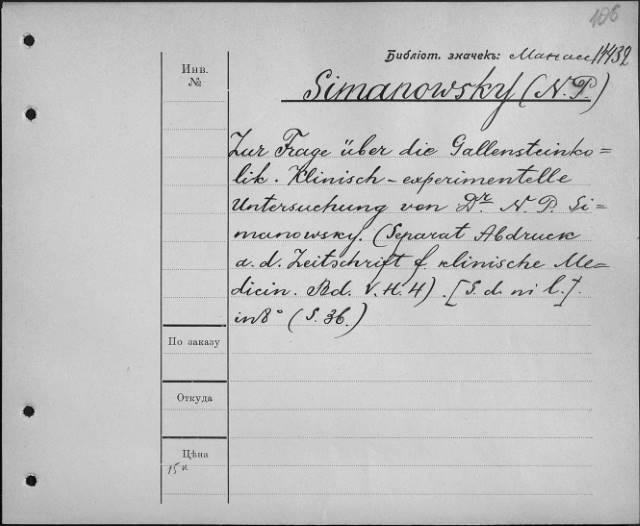 106
Библіот. значекъ: Манас 11432
Инв.
№
Simanowsky (N. P.)
Zur Frage über die Gallensteinko=
lik. Klinisch-experimentelle
Untersuchung von Dr. N. P. Si=
manowsky. (Separat Abdruck
a. d. Zeitschrift f. klinische Me=
dicin. Bd. V. H. 4). [S. d. ni l.].
in8° (S. 36.)
По заказу
Откуда
Цѣна
15 к